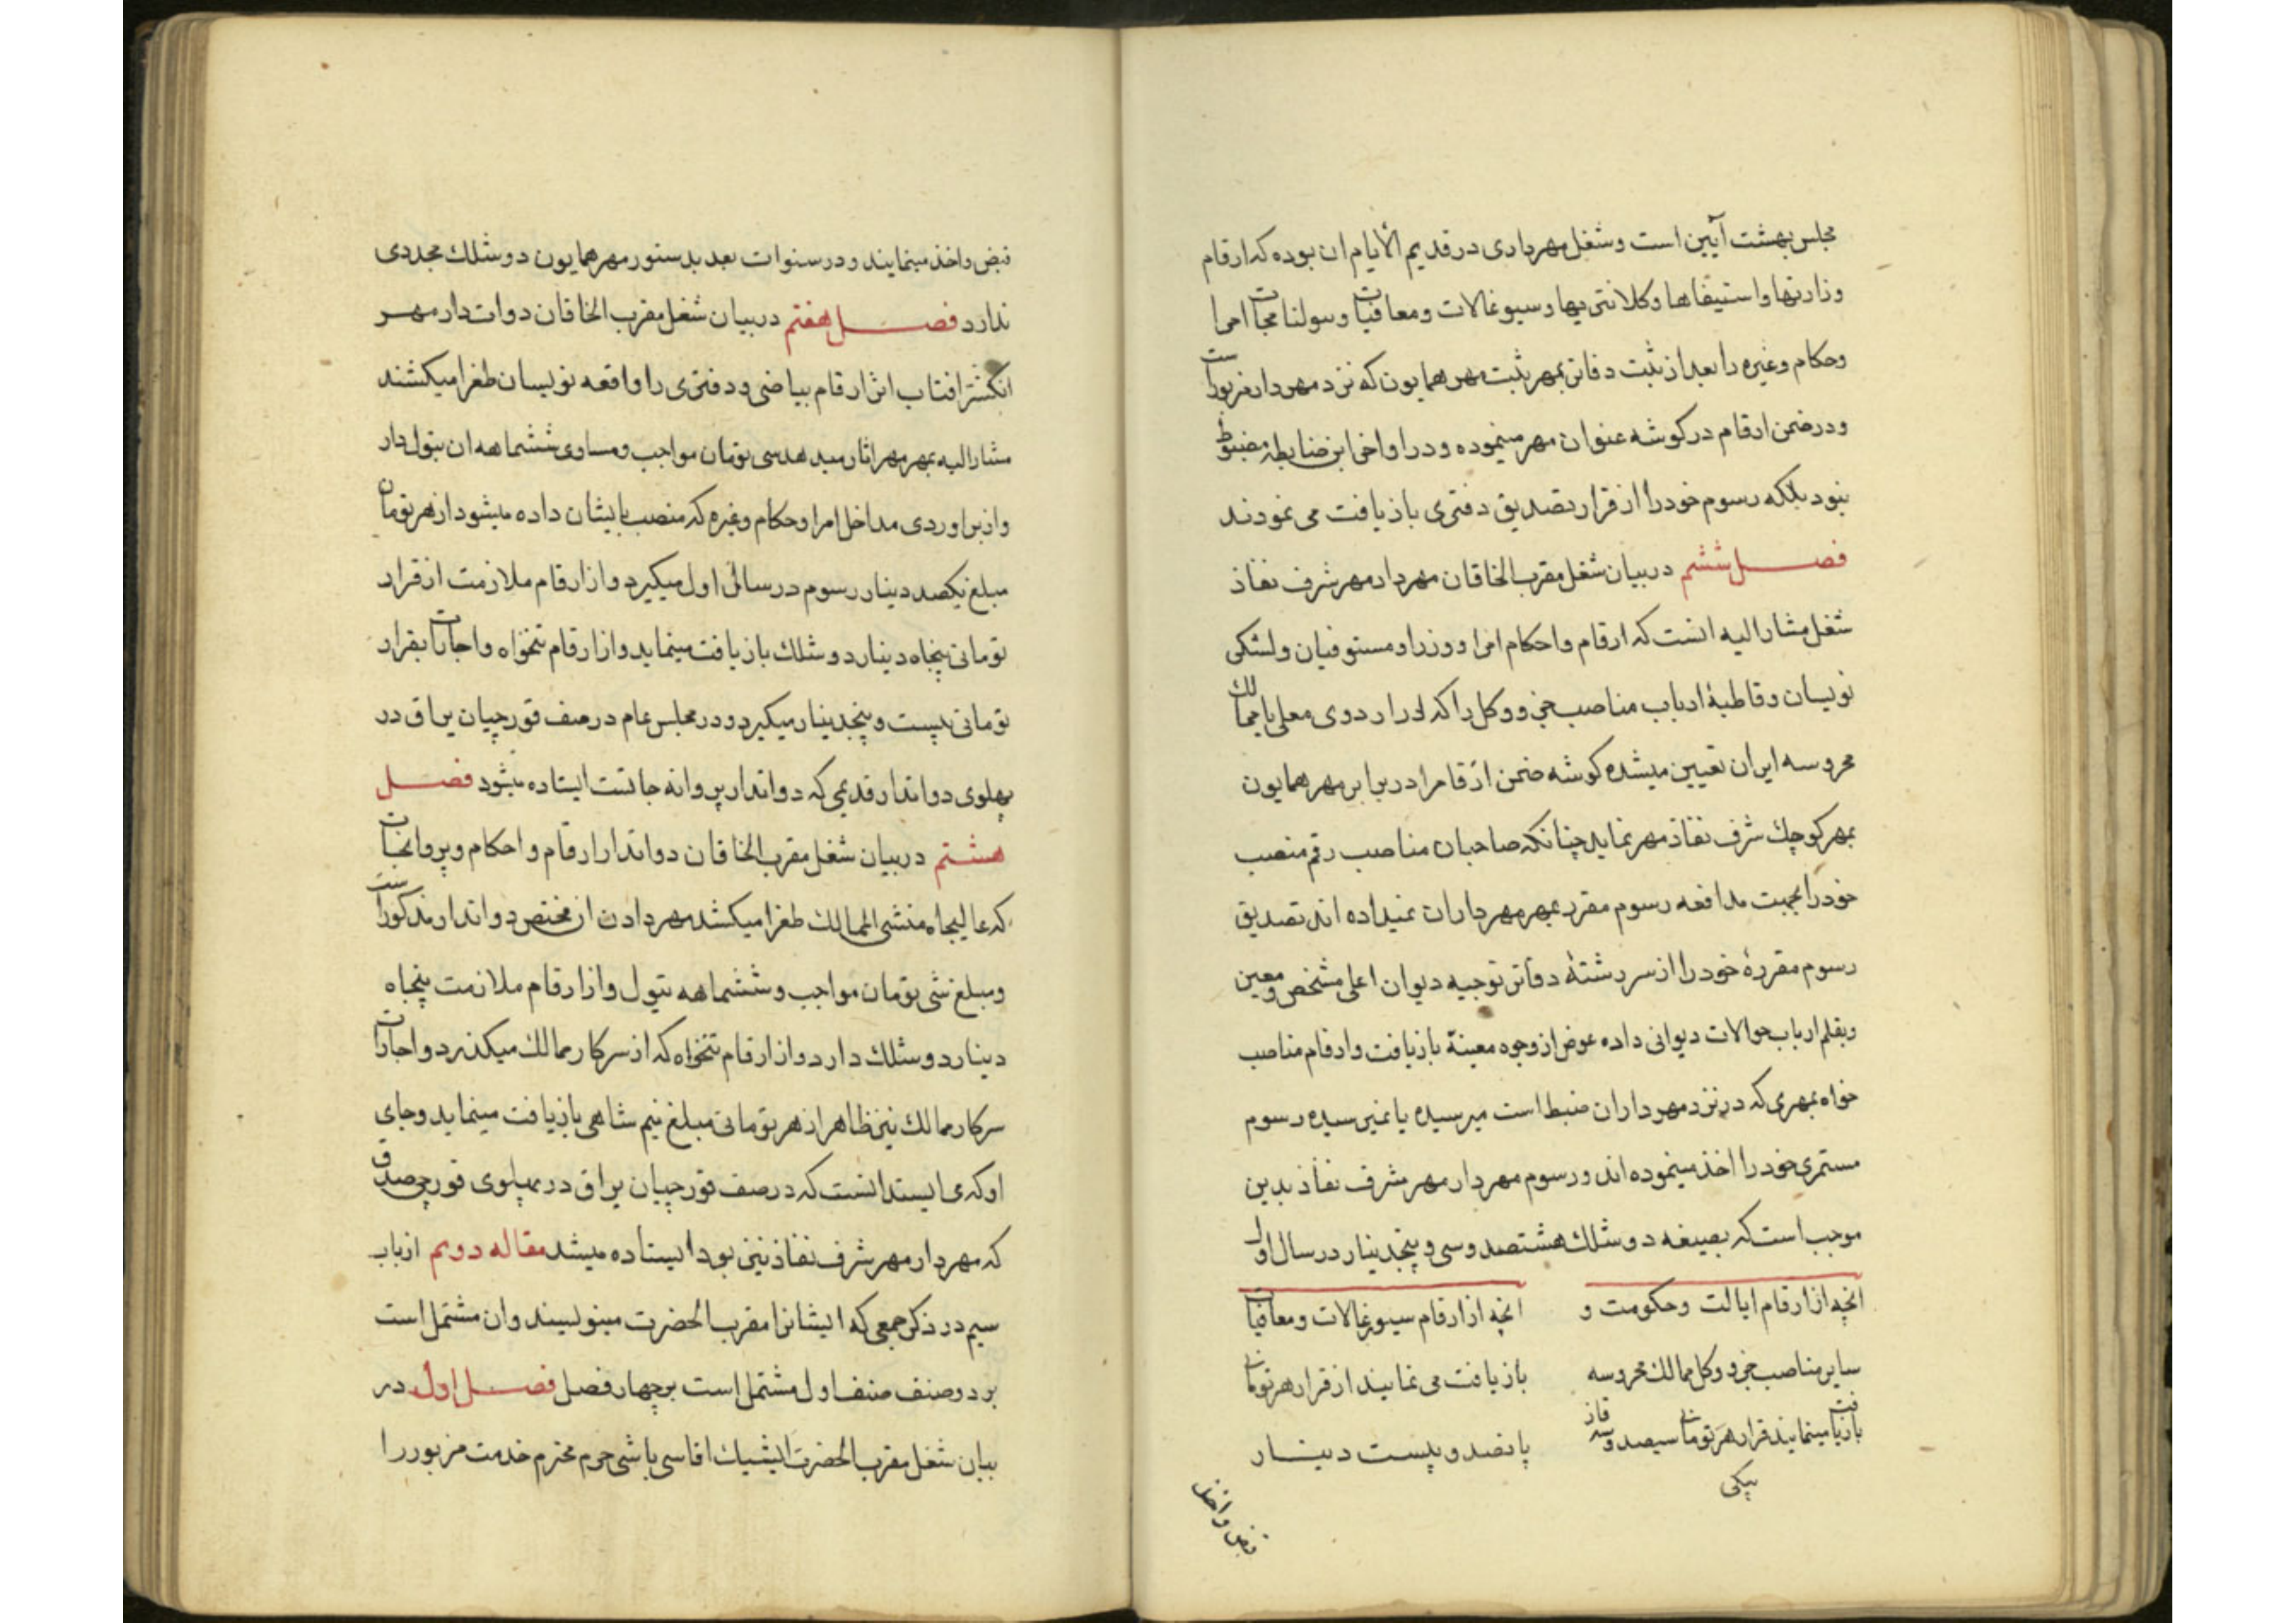 مجلس بهشت آیین است و شغل مهرداری در قدیم الأیام ان بوده که ارقام
وزارتها و استیفاها و کلانتریها و سیورغالات و معافیات و سولنامجات امرا
و حکام و غیره را بعد از ثبت دفاتر بمهر ثبت مهر همایون که نزد مهردار مزبور است
و در ضمن ارقام در کوشه عنوان مهر مینموده و در اواخر این ضابطه مضبوط
نبود بلکه رسوم خود را از قرار تصدیق دفتری بازیافت می نمودند
فصل ششم در بیان شغل مقرب الخاقان مهردار مهر شرف نفاذ
شغل مشار الیه انست که ارقام و احکام امرا و وزرا و مستوفیان و لشکر
نویسان و قاطبهٔ ارباب مناصب جزو و کل را که در اردوی معلی یا ممالك
محروسه ایران تعیین میشده کوشه ضمن ارقام را در برابر مهر همایون
بمهر کوچك شرف نفاذ مهر نماید چنانکه صاحبان مناصب رقم منصب
خود را بجهت مدافعه رسوم مقرر بمهر مهرداران نمیداده اند تصدیق
رسوم مقررهٔ خود را از سررشتهٔ دفاتر توجیه دیوان اعلی مشخص و معین
و بقلم ارباب حوالات دیوانی داده عوض از وجوه معینة بازیافت و ارقام مناصب
خواه بمهری که در نزد مهرداران ضبط است میرسیده یا نمیرسیده رسوم
مستمری خود را اخذ مینموده اند و رسوم مهردار مهر شرف نفاذ بدین
موجب است که بصیغه دوشلك هشتصد و سی و پنجدینار در سال اول
انچه از ارقام ایالت و حکومت و
سایر مناصب جزو و کل ممالك محروسه
بازیافت مینمایند قرار هر تومان سیصد و سه
انچه از ارقام سیورغالات و معافیات
بازیافت می نمایند از قرار هر تومان
پانصد و بیست دینار
قبض و اخذ
قبض و اخذ مینمایند و در سنوات بعد بدستور مهر همایون دوشلك مجددی
ندارد فصل هفتم در بیان شغل مقرب الخاقان دواتدار مهر
انکشتر افتاب اثر ارقام بیاضی و دفتری را واقعه نویسان طغرا میکشند
مشار الیه بمهر مهر اثار میدهد سی تومان مواجب و مساوی ششماهه ان تیول دار
و از براوردی مداخل امرا و حکام و غیره که منصب بایشان داده میشود از هر تومان
مبلغ یکصد دینار رسوم در سال اول میکیرد و از ارقام ملازمت از قرار
تومانی پنجاه دینار دوشلك بازیافت مینماید و از ارقام تنخواه و اجارات بقرار
تومانی بیست و پنجدینار میکیرد و در مجلس عام در صف قورچیان یراق در
پهلوی دواتدار قدیمی که دواتدار پروانه جاتست ایستاده میشود فصل
هشتم در بیان شغل مقرب الخاقان دواتدار ارقام و احکام و پروانجات
که عالیجاه منشی الممالك طغرا میکشد مهر دادن از مختص دواتدار مذکور است
و مبلغ سی تومان مواجب و ششماهه تیول و از ارقام ملازمت پنجاه
دینار دوشلك دارد و از ارقام تنخواه که از سرکار ممالك میکذرد و اجارات
سرکار ممالك نیز ظاهرا از هر تومانی مبلغ نیم شاهی بازیافت مینماید و جای
او که می ایستد انست که در صف قورچیان یراق در پهلوی قورچی صدق
که مهردار مهر شرف نفاذ نیز بود ایستاده میشد مقاله دویم از باب
سیم در ذکر جمعی که ایشانرا مقرب الحضرت مینویسند و ان مشتمل است
بر دو صنف صنف اول مشتمل است بر چهار فصل فصل اول در
بیان شغل مقرب الحضرت ایشیك اقاسی باشی حرم محترم خدمت مزبور را